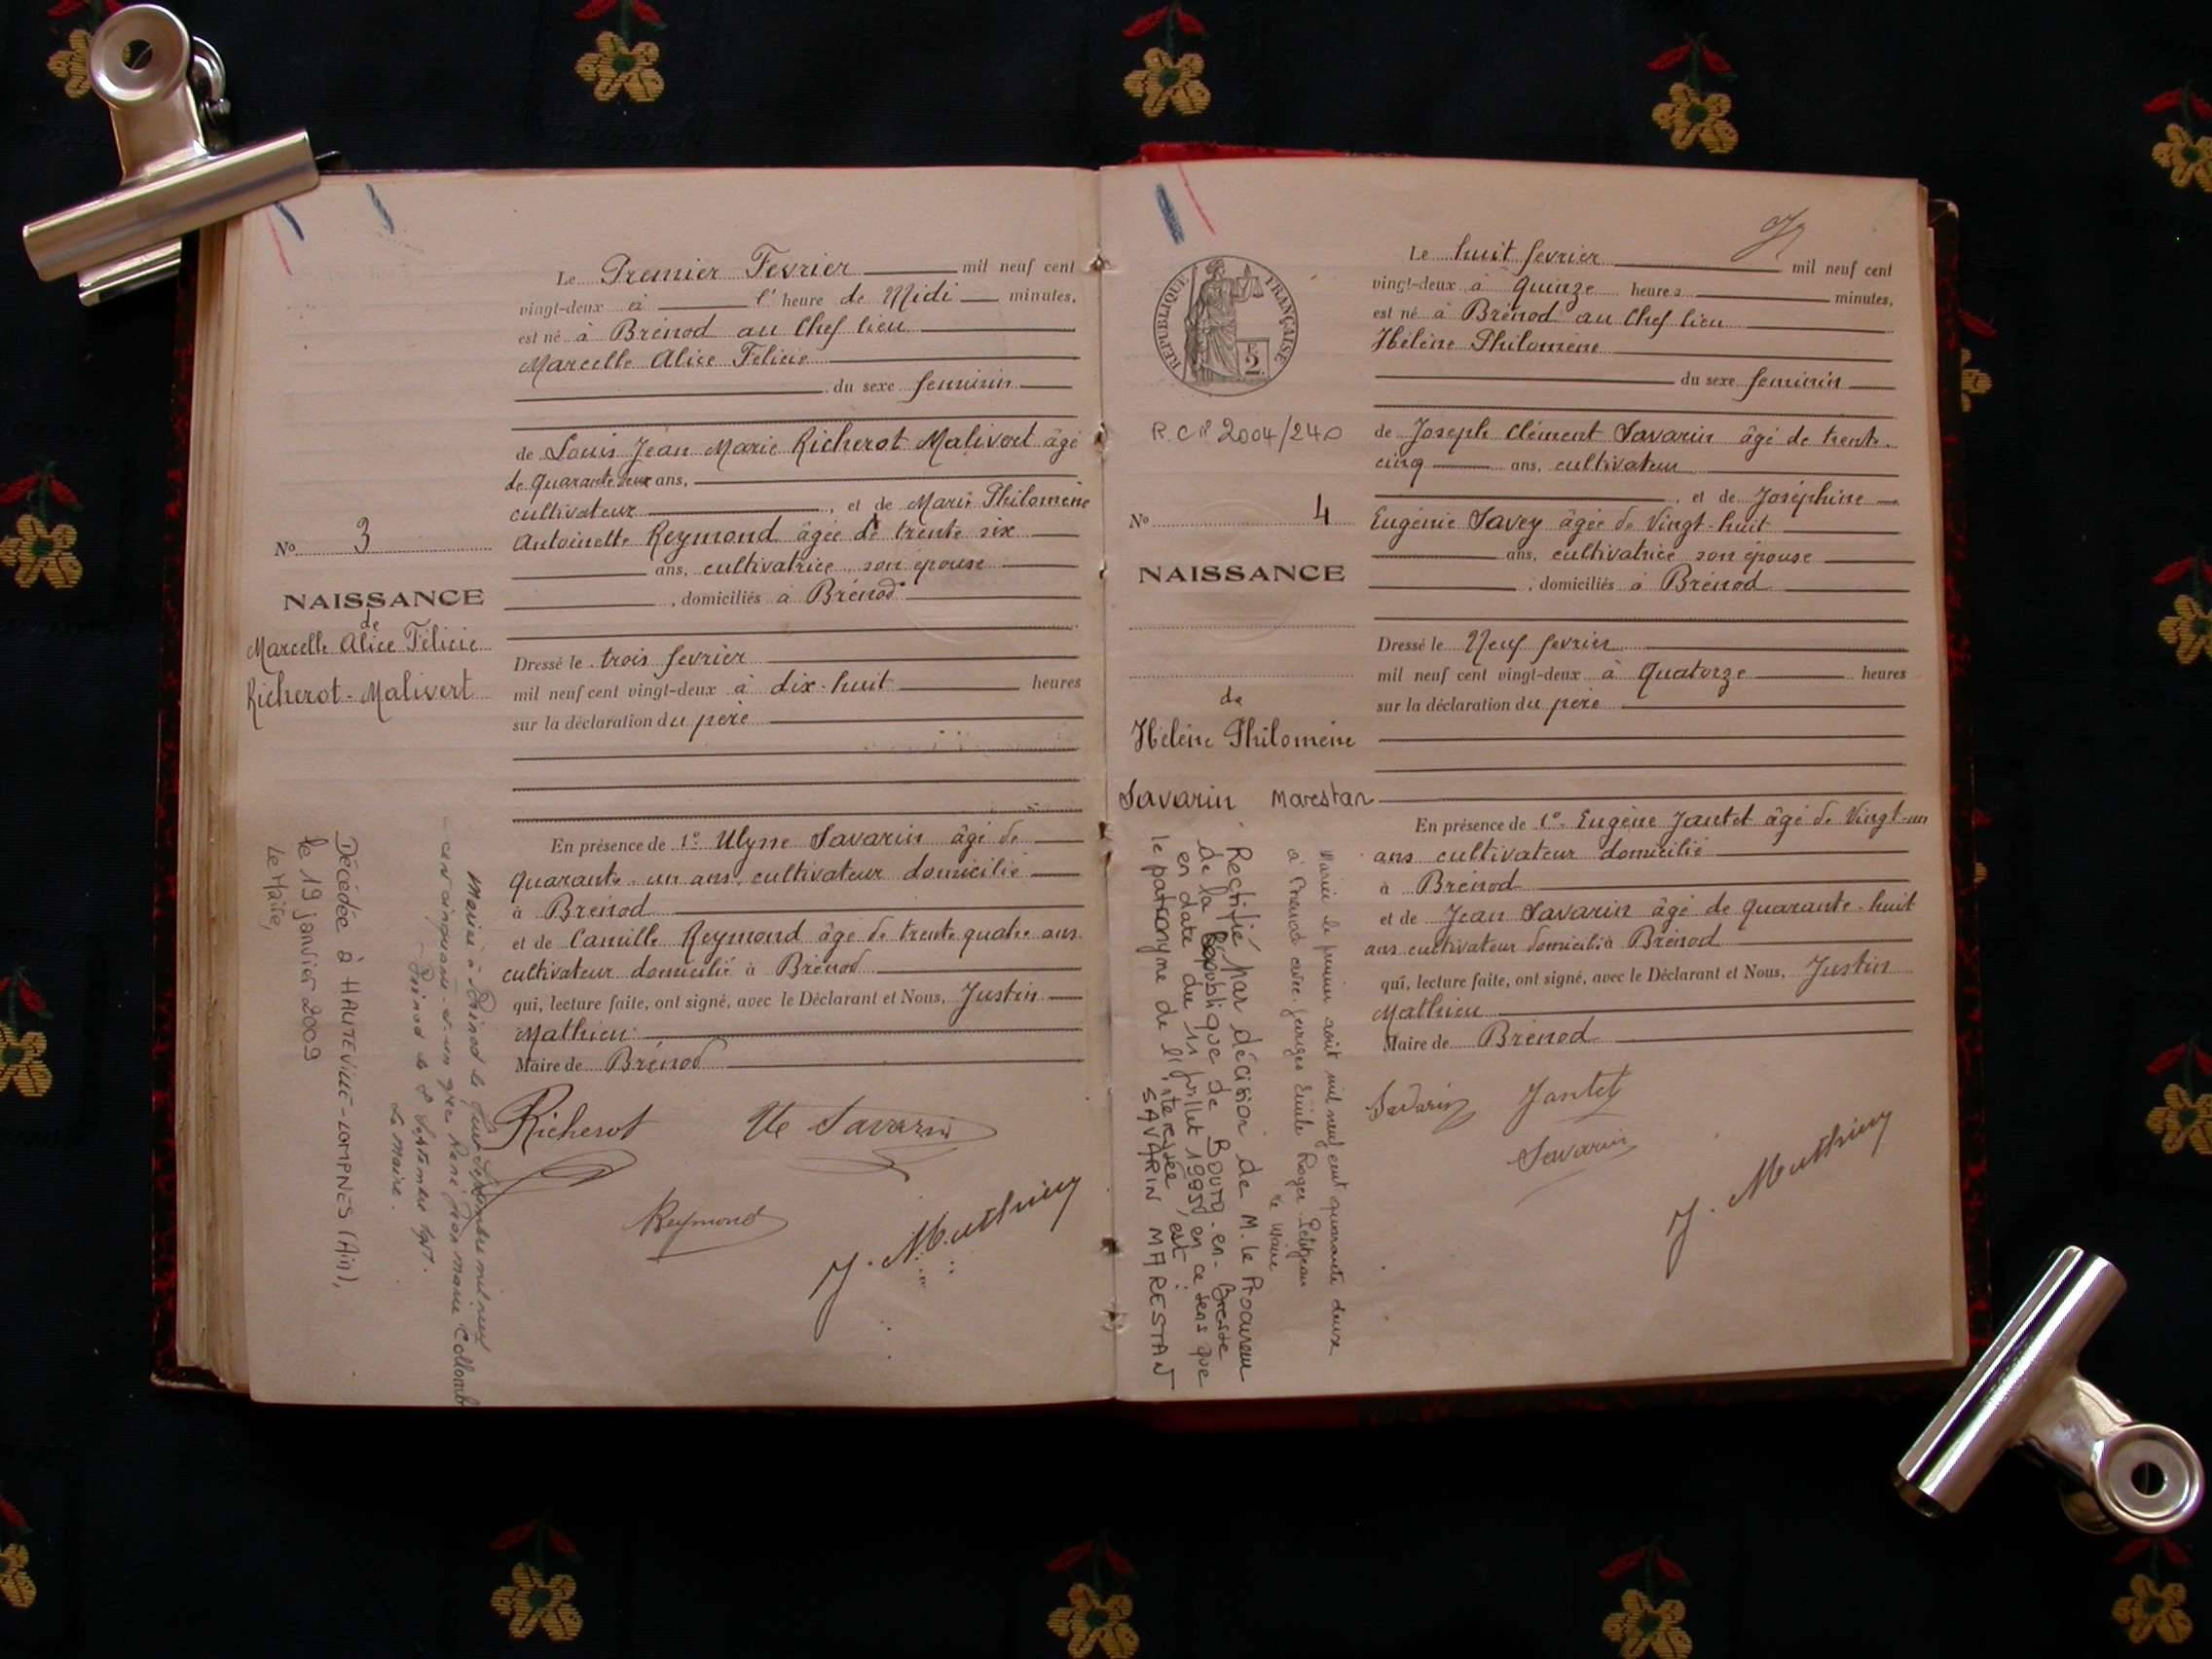 Le Premier Fevrier mil neuf cent
vingt-deux à l'heure de Midi minutes,
est né à Brénod au Chef lieu
Marcelle Alice Félicie
du sexe feminin
de Louis Jean Marie Richerot Malivert âgé
de quarante deux ans,
cultivateur, et de Marie Philomène
Antoinette Reymond âgée de trente six
ans, cultivatrice, son épouse
, domiciliés à Brénod
Dressé le trois fevrier
mil neuf cent vingt-deux à dix-huit heures
sur la déclaration du père
En présence de 1º Ulysse Savarin âgé de
quarante-un ans, cultivateur domicilié
à Brénod
et de Camille Reymond âgé de trente quatre ans
cultivateur domicilié à Brénod
qui, lecture faite, ont signé, avec le Déclarant et Nous, Justin
Mathieu
Maire de Brénod
Richerot
Ue Savarin
Reymond
J. Mathieu
No 3
NAISSANCE
de
Marcelle Alice Félicie
Richerot-Malivert
Mariée à Brénod le huit septembre mil neuf
cent cinquante-et-un avec René Jean Marie Collomb
Brénod le 8 Septembre 1951.
Le Maire.
Décédée à HAUTEVILLE-LOMPNES (Ain),
le 19 janvier 2009
Le Maire,
RÉPUBLIQUE FRANÇAISE
2
R.C nº 2004/240
No 4
NAISSANCE
de
Hélène Philomène
Savarin Marestan
Le huit fevrier mil neuf cent
vingt-deux à quinze heures minutes,
est né à Brénod au Chef lieu
Hélène Philomène
du sexe feminin
de Joseph Clément Savarin âgé de trente-
cinq ans, cultivateur
, et de Joséphine
Eugénie Savey âgée de vingt-huit
ans, cultivatrice son épouse
, domiciliés à Brénod
Dressé le Neuf fevrier
mil neuf cent vingt-deux à quatorze heures
sur la déclaration du père
En présence de 1º Eugène Jantet âgé de Vingt-un
ans cultivateur domicilié
à Brénod
et de Jean Savarin âgé de quarante-huit
ans cultivateur domicilié à Brénod
qui, lecture faite, ont signé, avec le Déclarant et Nous, Justin
Mathieu
Maire de Brénod
Savarin
Jantet
Savarin
J. Mathieu
Mariée le premier août mil neuf cent quarante deux
à Brénod avec Georges Emile Roger Petitjean
Le Maire
Rectifié par décision de M. le Procureur
de la République de Bourg-en-Bresse
en date du 11 juillet 1995, en ce sens que
le patronyme de l'intéressée est :
SAVARIN MARESTAN